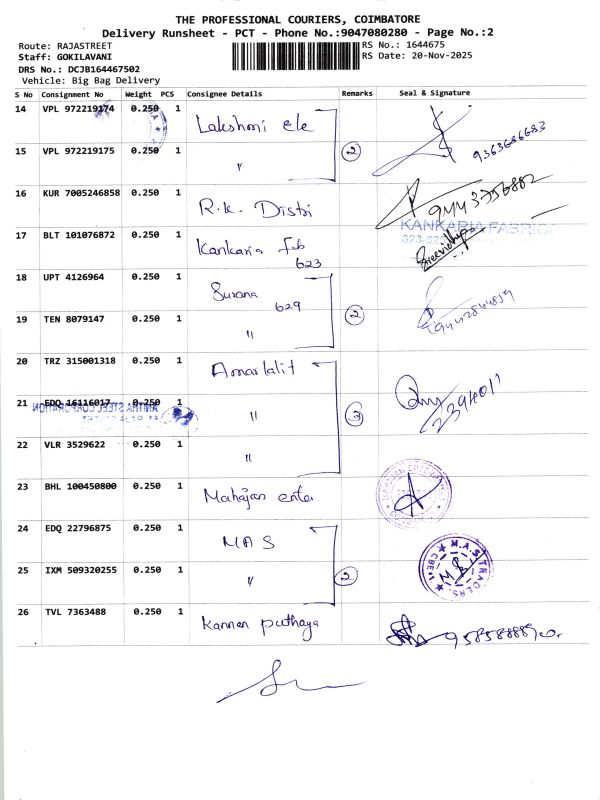 THE PROFESSIONAL COURIERS, COIMBATORE
Delivery Runsheet - PCT - Phone No.:9047080280 - Page No.:2
Route: RAJASTREET RS No.: 1644675
Staff: GOKILAVANI RS Date: 20-Nov-2025
DRS No.: DCJB164467502
Vehicle: Big Bag Delivery
S No Consignment No Weight PCS Consignee Details Remarks Seal & Signature
14 VPL 972219174 0.250 1 Lakshmi ele
9363686683
15 VPL 972219175 0.250 1 " 2
16 KUR 7005246858 0.250 1 R.K. Distri
9443756882
17 BLT 101076872 0.250 1 Kankaria Fab
623
KANKARIA FABRICS
18 UPT 4126964 0.250 1 Surana
629
19 TEN 8079147 0.250 1 " 2
20 TRZ 315001318 0.250 1 Amarlalit
21 EDQ 16116017 0.250 1 " 3
2394011
22 VLR 3529622 0.250 1 "
23 BHL 100450800 0.250 1 Mahajan enter
24 EDQ 22796875 0.250 1 MAS
M.A.S. TRADERS
CBE-1
25 IXM 509320255 0.250 1 " 2
26 TVL 7363488 0.250 1 Kannan puthaga